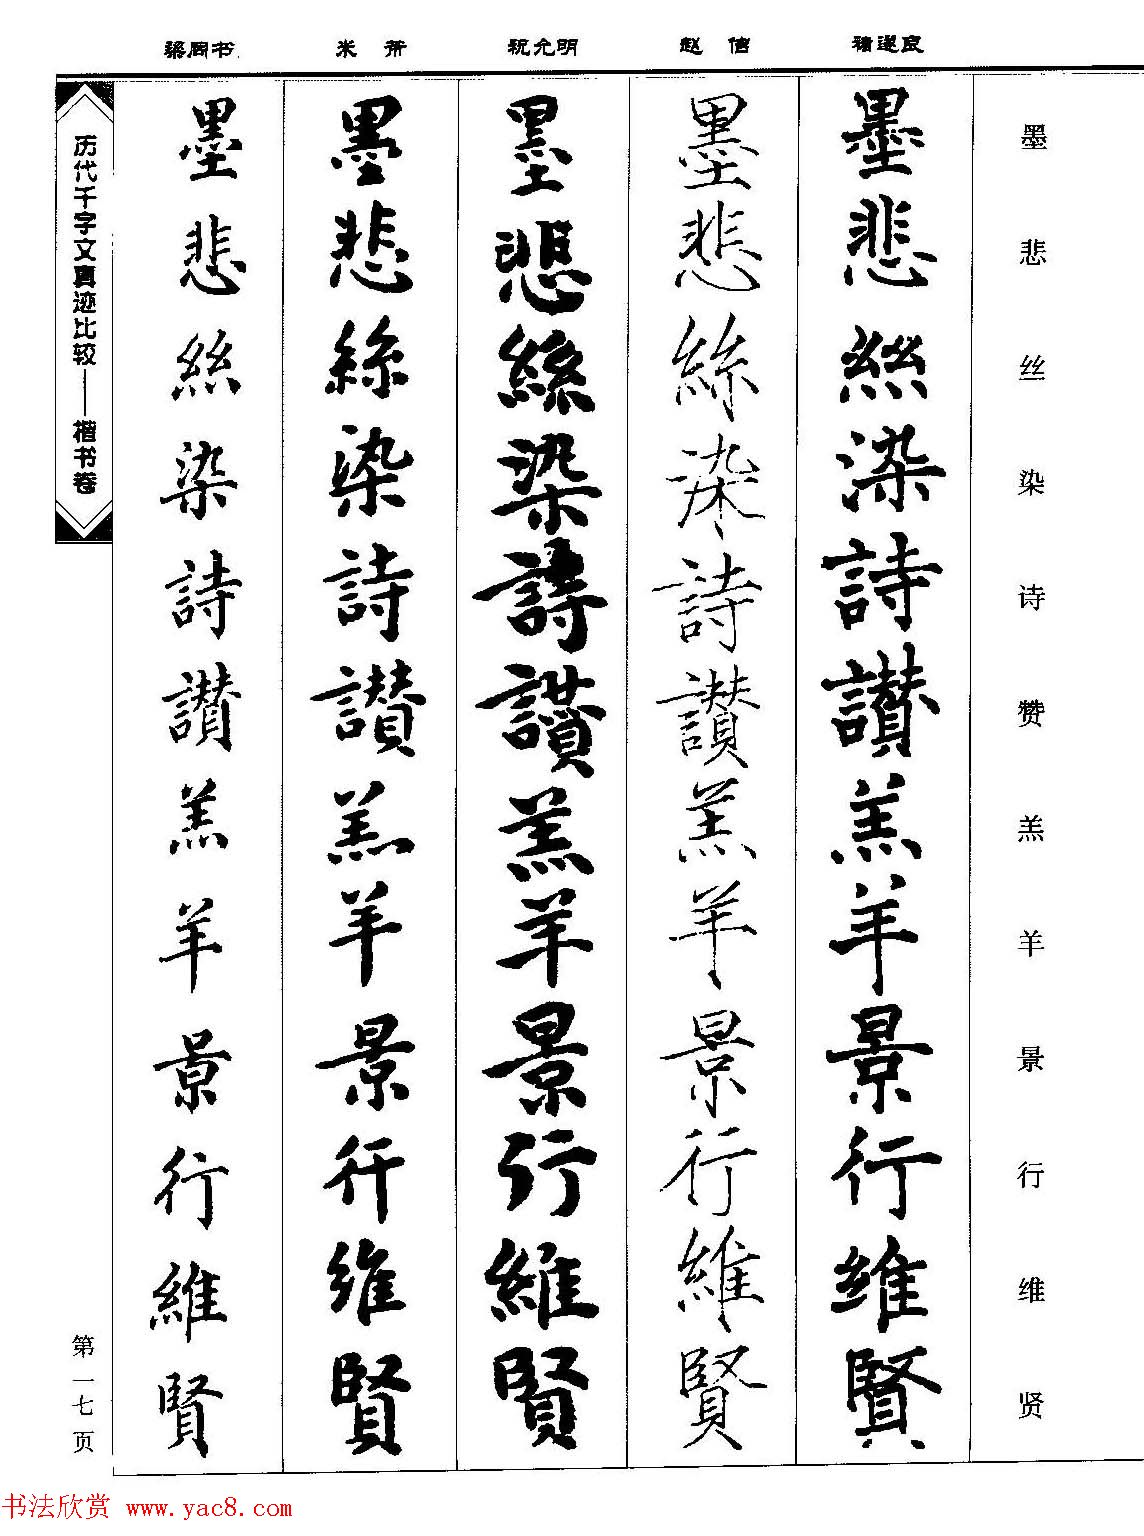 褚遂良
赵佶
祝允明
米芾
梁同书
墨悲丝染诗赞羔羊景行维贤
墨悲絲染詩讚羔羊景行維賢
墨悲絲染詩讚羔羊景行維賢
墨悲絲染詩讚羔羊景行維賢
墨悲絲染詩讚羔羊景行維賢
墨悲絲染詩讚羔羊景行維賢
历代千字文真迹比较——楷书卷
第一七页
书法欣赏 www.yac8.com